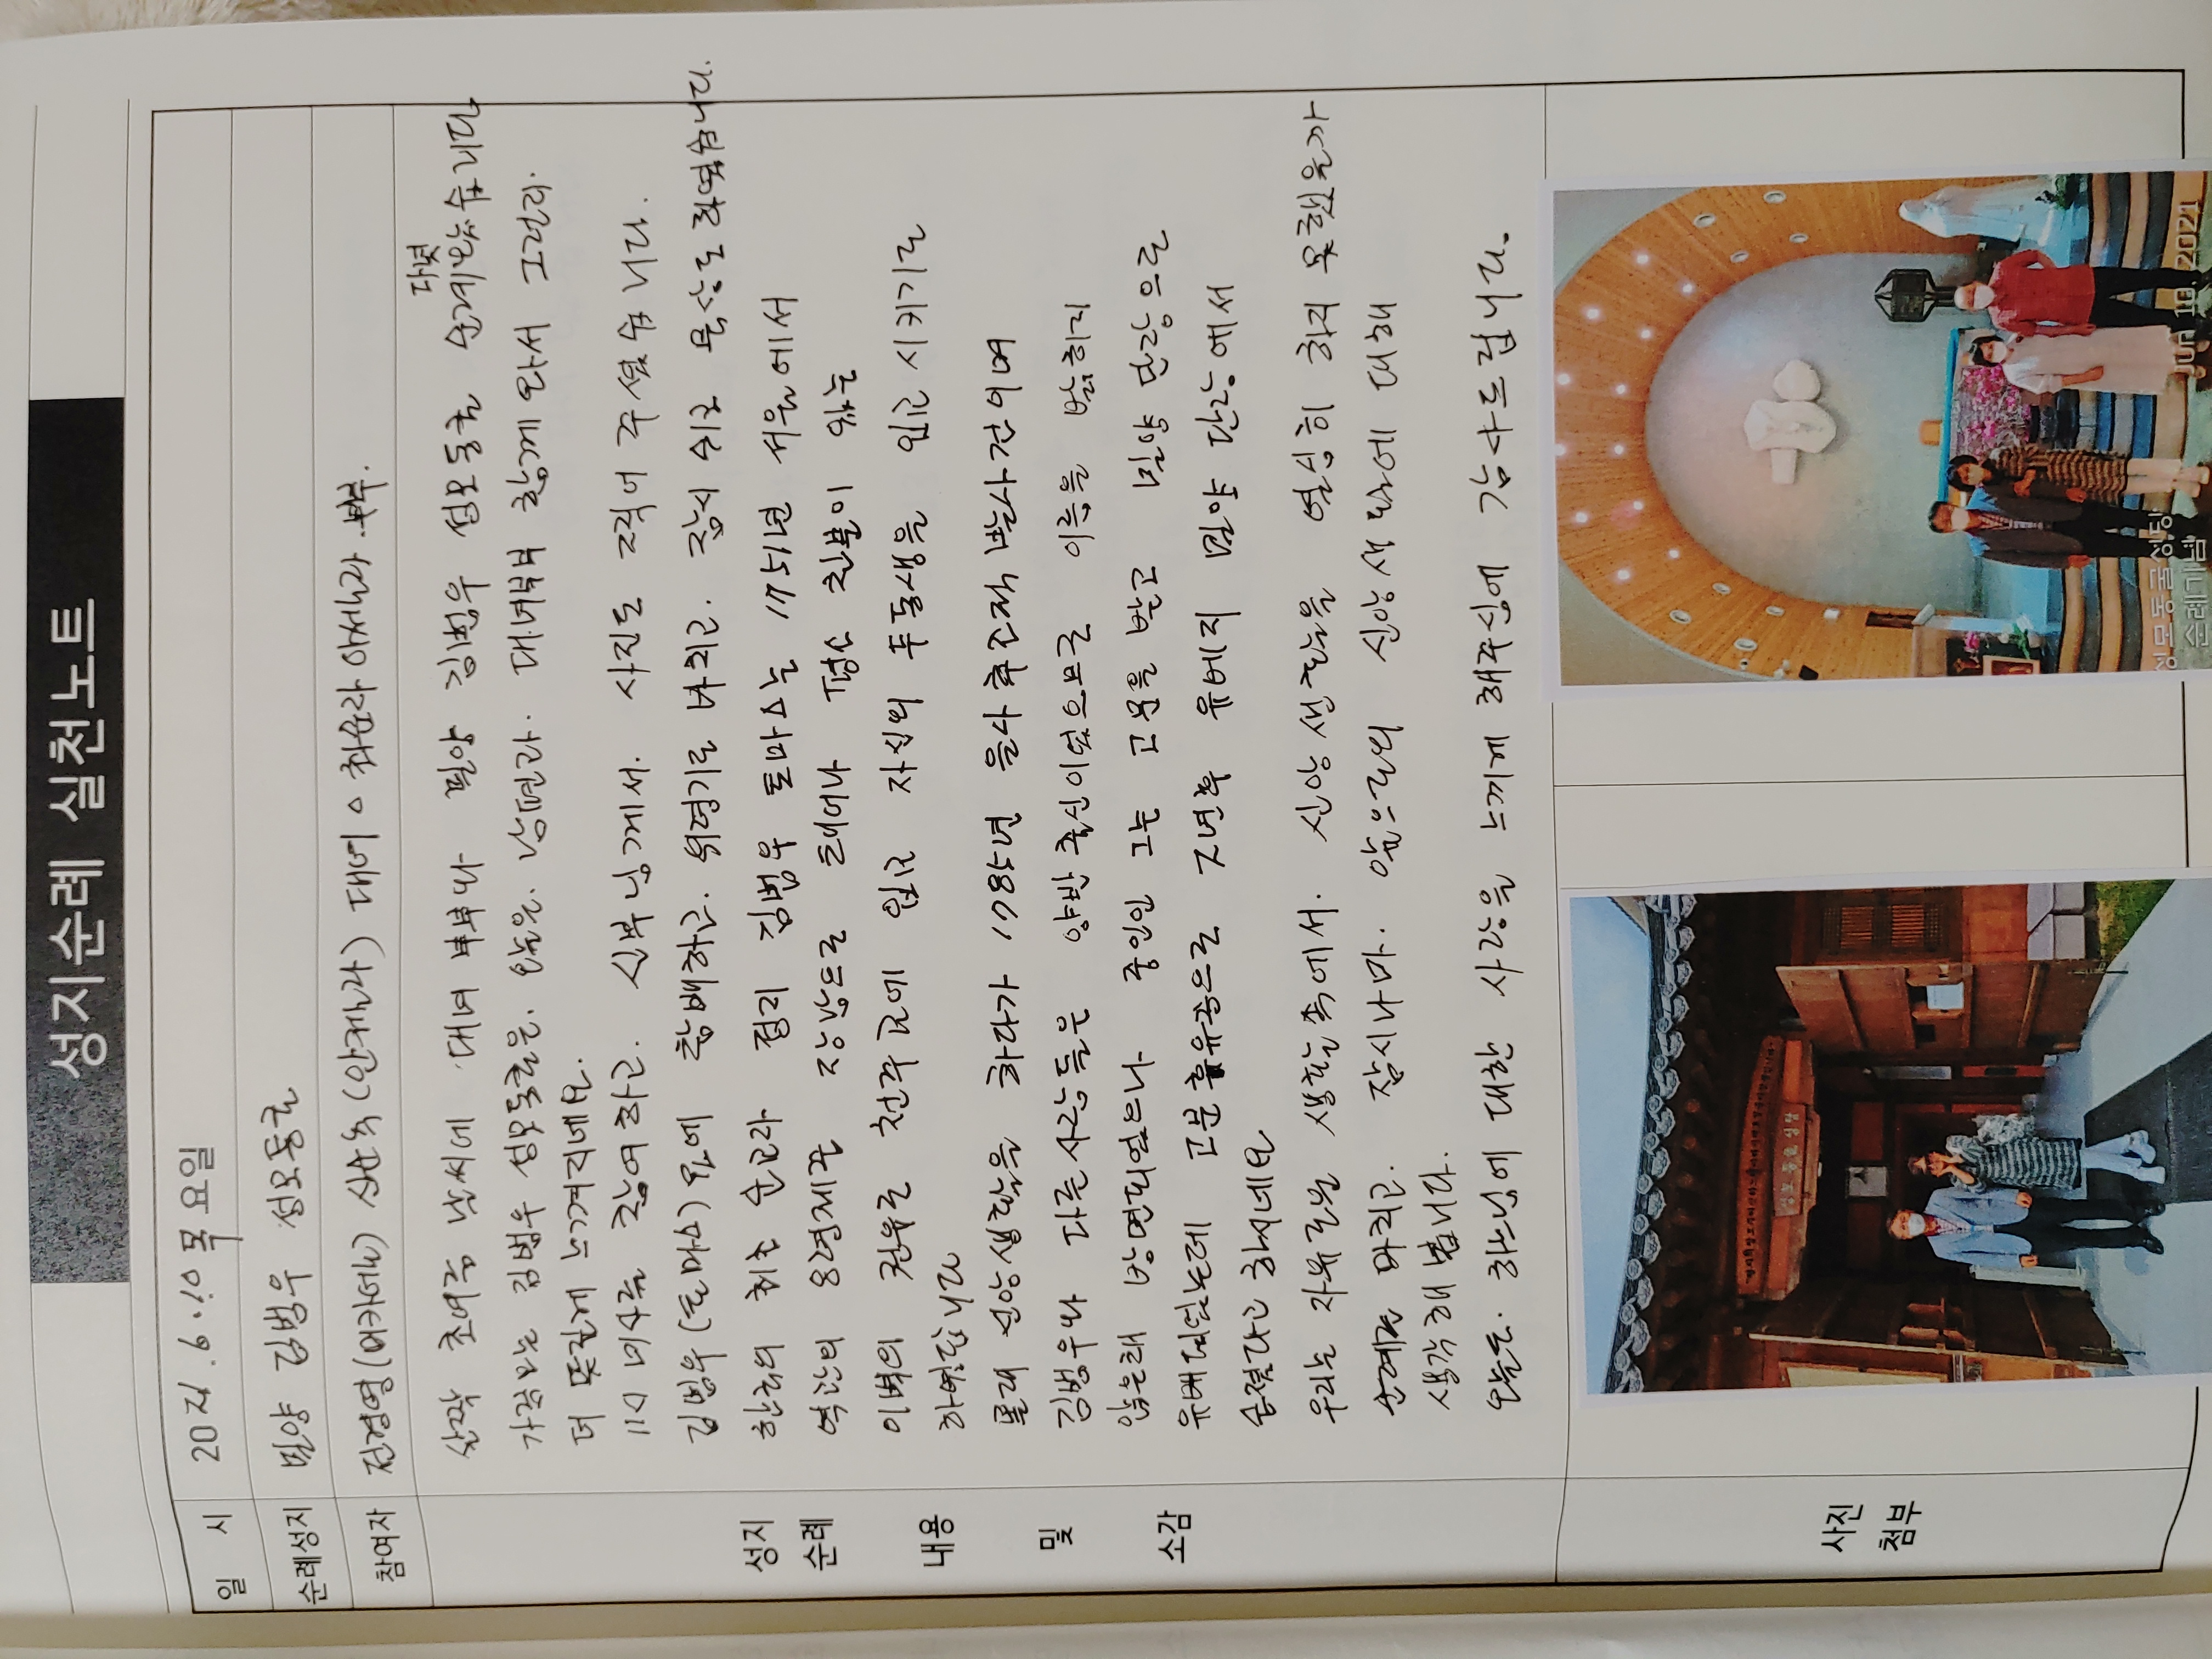 성지순례 실천노트
일 시
2021.6.10 목요일
순례성지
밀양 김범우 성모동굴
참여자
전경영 신순옥 (안젤라) 대녀 부부.
다녀
살짝 초여름 날씨에 대녀 부부와 밀양 김범우 성모동굴 순례왔습니다
가끔오는 김범우 성모동굴은. 오늘은. 남편과. 대녀부부 함께 와서 그런지.
더 뜻깊게 느껴지네요.
11시 미사를 참여하고. 신부님께서. 사진도 찍어 주셨습니다.
김범우(토마스) 묘에 참배하고. 위령기도 바치고. 잠시 쉬고 묵상도 하였습니다.
한국의 최초 순교자 김범우 토마스는 1751년 서울에서
역관의 8형제꾼 장남으로 태어나 평소 친분이 있는
이벽의 권유로 천주교에 입교 자신의 두동생을 입교 시키기도
하였답니다
몰래 신앙생활을 하다가 1785년 을사추조적발사건이며
김범우와 다른사람들은 양반출신이었으므로 이름을 밝히지
않은채 방면되었으나 중인인 그는 고문을 받고 밀양 단장으로
유배되었는데 고문휴유증으로 2년후 유베지 밀양 단장에서
순졌다고 하시네요
우리는 자유로운 생활속에서. 신앙생활을 열심히 하지 못했을까
순례를 마치고. 잠시나마. 앞으로의 신앙생활에 대해
생각해 봅니다.
오늘도. 하느님에 대한 사랑을 느끼게 해주심에 감사드립니다.
성지
순례
내용
및
소감
사진
첨부
성모동굴성당
성모동굴성당
순례기념
Jun 10, 2021